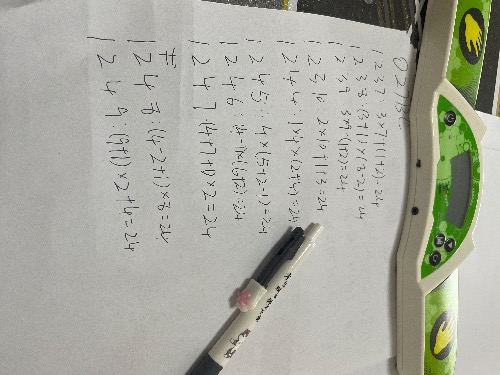 1 2 3 7 : 3×7+(1+2)=24
1 2 3 8 : (3+1)×(8-2)=24
1 2 3 9 : 3×9-(1+2)=24
1 2 3 10 : 2×10+1+3=24
1 2 4 4 : 1×4×(2+4)=24
1 2 4 5 : 4×(5+2-1)=24
1 2 4 6 :
1 2 4 7 (4+7+1)×2=24
1 2 4 8 : (4-2+1)×8=24
1 2 4 9 : (9+1)×2+4=24